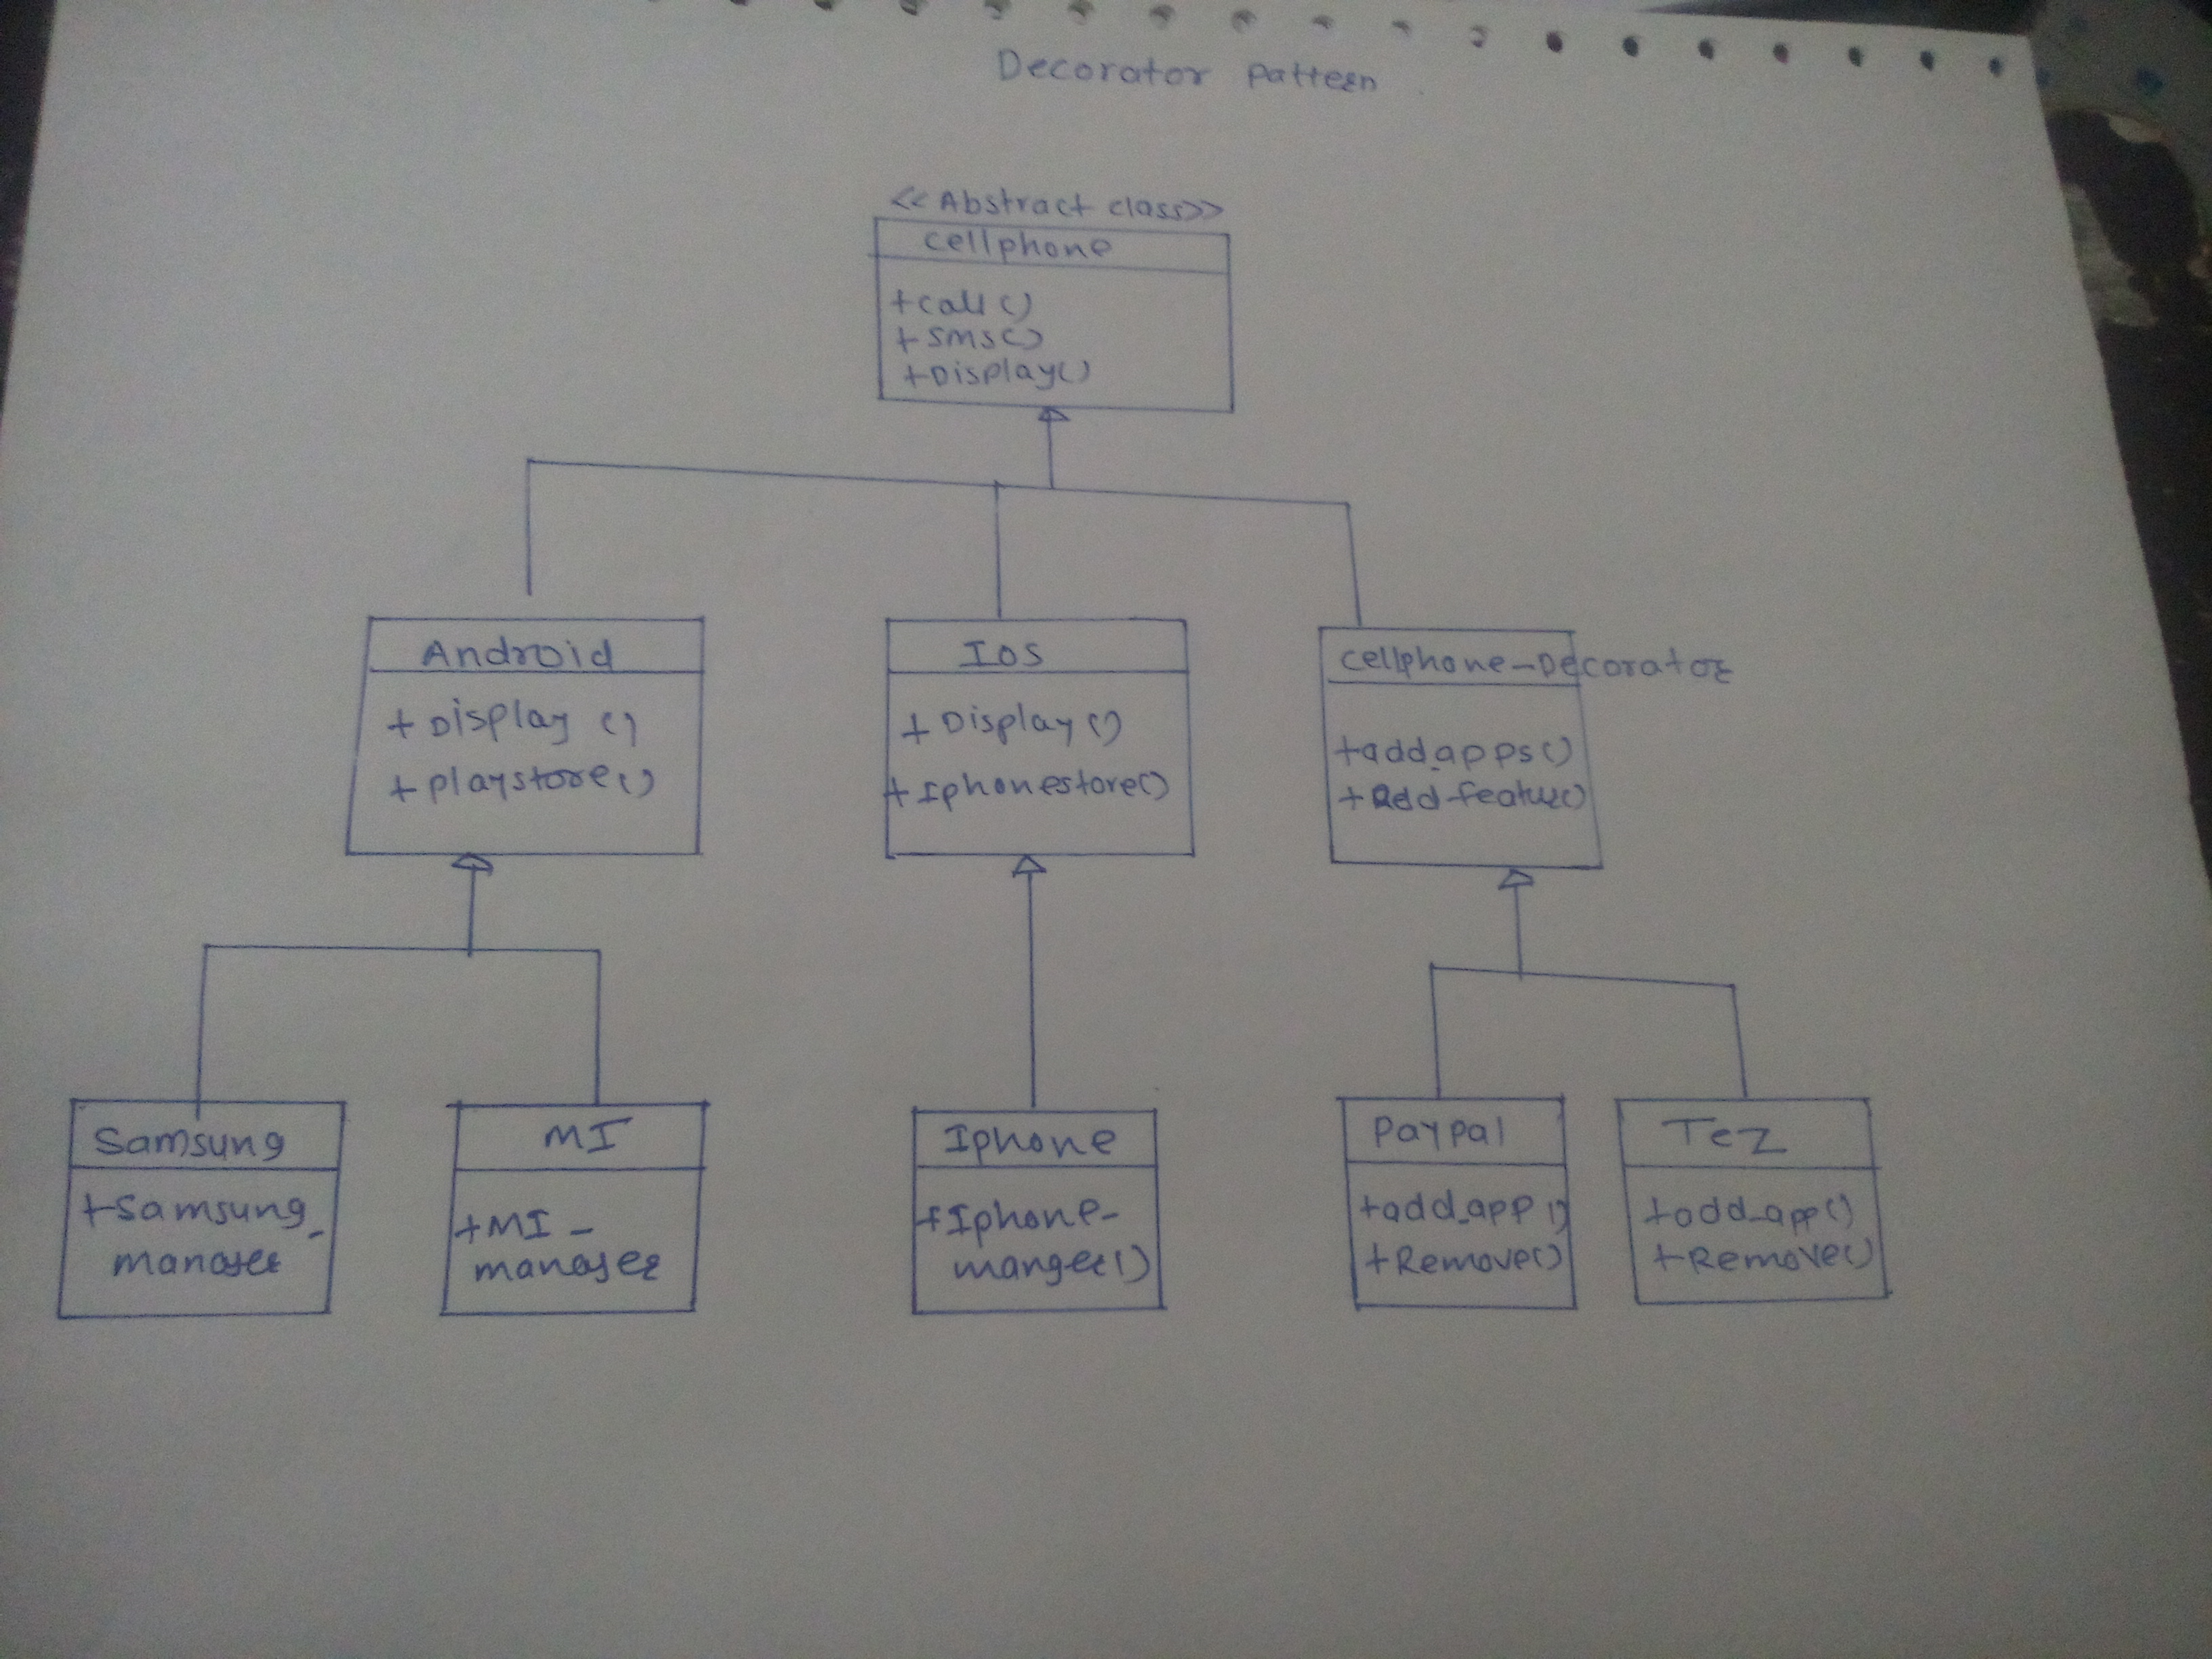 Decorator pattern
<<Abstract class>>
cellphone
+call()
+sms()
+Display()
Android
+Display()
+playstore()
Ios
+Display()
+Iphonestore()
cellphone-Decorator
+add_apps()
+add-feature()
Samsung
+Samsung_
manager
MI
+MI_
manager
Iphone
+Iphone-
manger()
Paypal
+add_app()
+Remove()
Tez
+add_app()
+Remove()